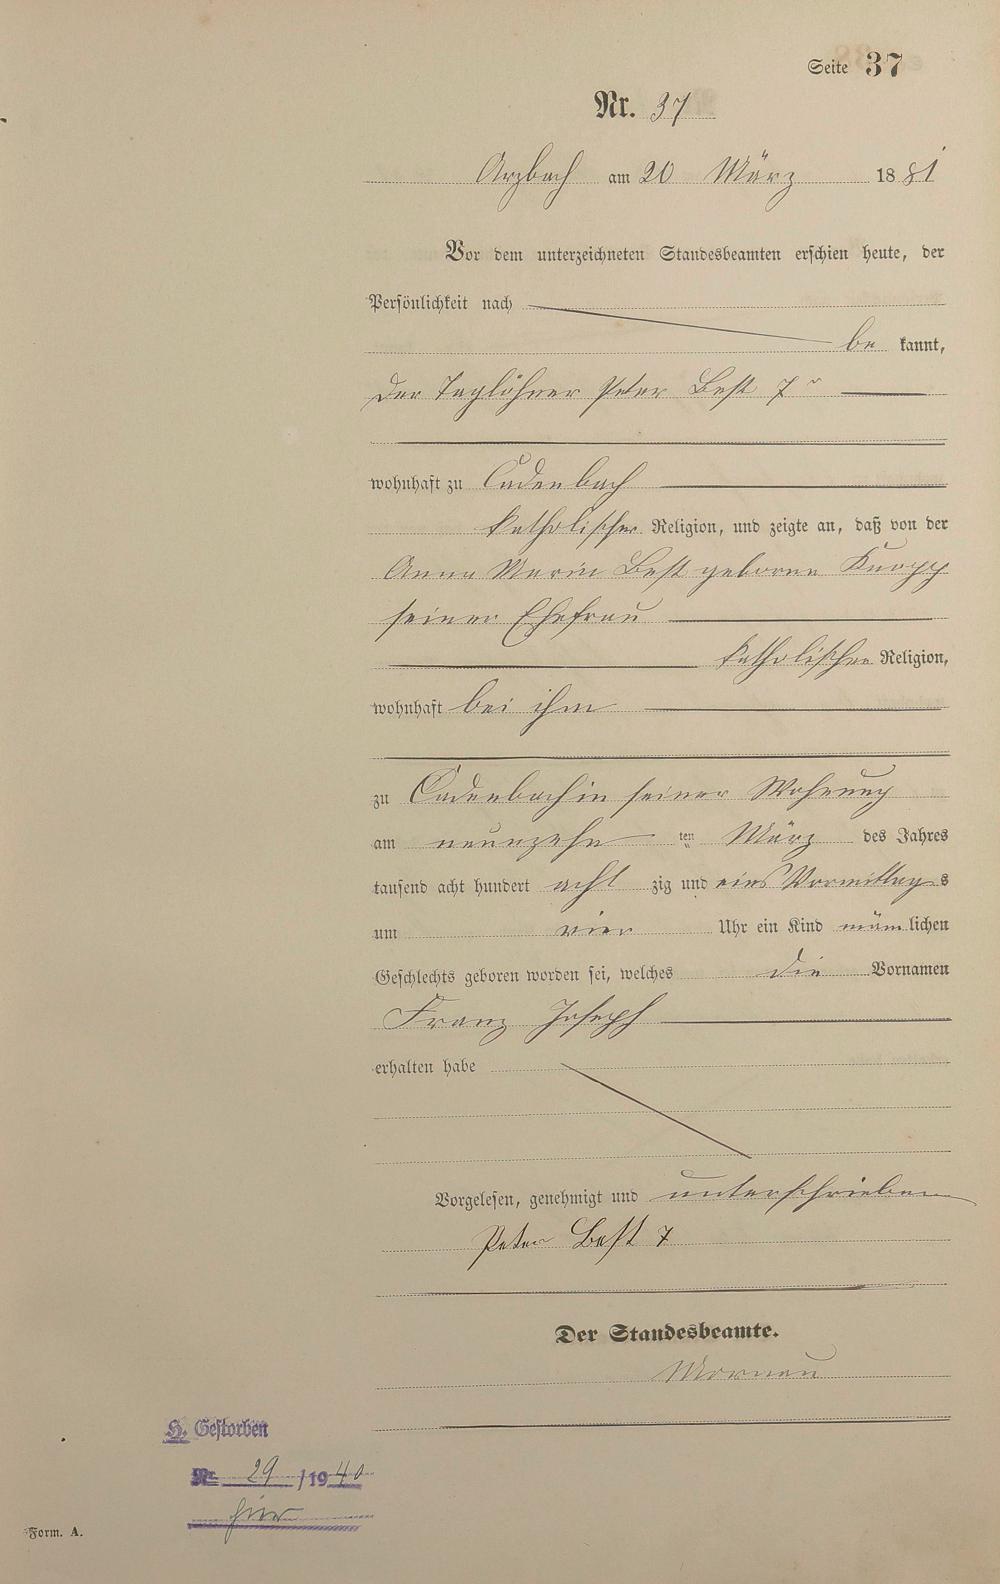 Seite 37
Nr. 37
Arzbach am 20 März 1881
Vor dem unterzeichneten Standesbeamten erschien heute, der
Persönlichkeit nach
be kannt,
der Taglöhner Peter Best 7r
wohnhaft zu Cadenbach
katholischer Religion, und zeigte an, daß von der
Anna Maria Best geborne Knopp
seiner Ehefrau
katholischer Religion,
wohnhaft bei ihm
zu Cadenbach in seiner Wohnung
am neunzehn ten März des Jahres
tausend acht hundert acht zig und eins Vormittag s
um vier Uhr ein Kind männlichen
Geschlechts geboren worden sei, welches die Vornamen
Franz Joseph
erhalten habe
Vorgelesen, genehmigt und unterschrieben
Peter Best 7
Der Standesbeamte.
H. Gestorben
Nr. 29 /1940
hier
Form. A.